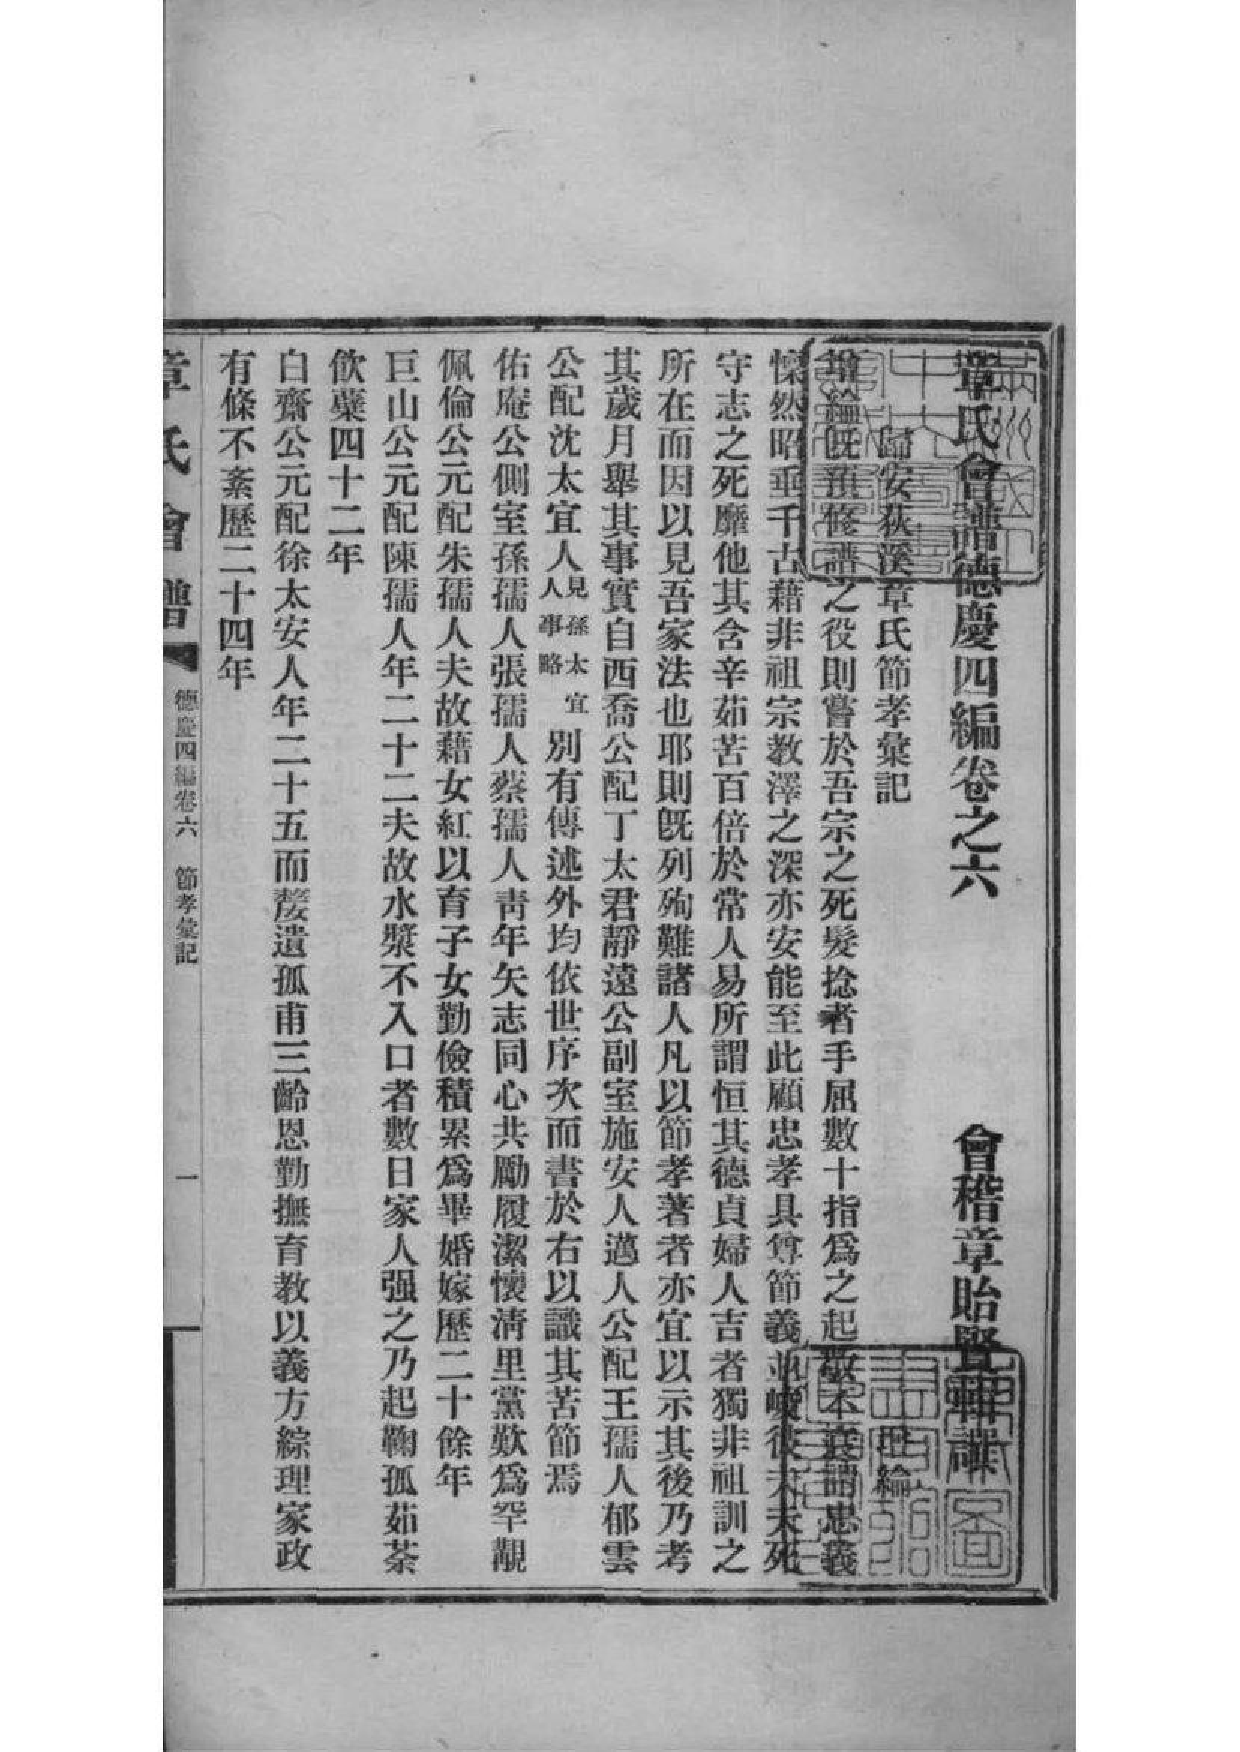 章氏會譜德慶四編卷之六 會稽章貽賢輯譔
歸安荻溪章氏節孝彙記 世綸
增綸旣預修譜之役則嘗於吾宗之死髮捻者手屈數十指爲之起敬本衷謂忠義
懍然昭垂千古藉非祖宗教澤之深亦安能至此顧忠孝具尊節義並峻彼夫夫死
守志之死靡他其含辛茹苦百倍於常人易所謂恒其德貞婦人吉者獨非祖訓之
所在而因以見吾家法也耶則旣列殉難諸人凡以節孝著者亦宜以示其後乃考
其歲月舉其事實自西喬公配丁太君靜遠公副室施安人邁人公配王孺人郁雲
公配沈太宜人見孫太宜人事略別有傳述外均依世序次而書於右以識其苦節焉
佑庵公側室孫孺人張孺人蔡孺人靑年矢志同心共勵履潔懷淸里黨歎爲罕覯
佩倫公元配朱孺人夫故藉女紅以育子女勤儉積累爲畢婚嫁歷二十餘年
巨山公元配陳孺人年二十二夫故水漿不入口者數日家人强之乃起鞠孤茹荼
飮蘗四十二年
白齋公元配徐太安人年二十五而嫠遺孤甫三齡恩勤撫育教以義方綜理家政
有條不紊歷二十四年
章氏會譜 德慶四編卷六 節孝彙記 一